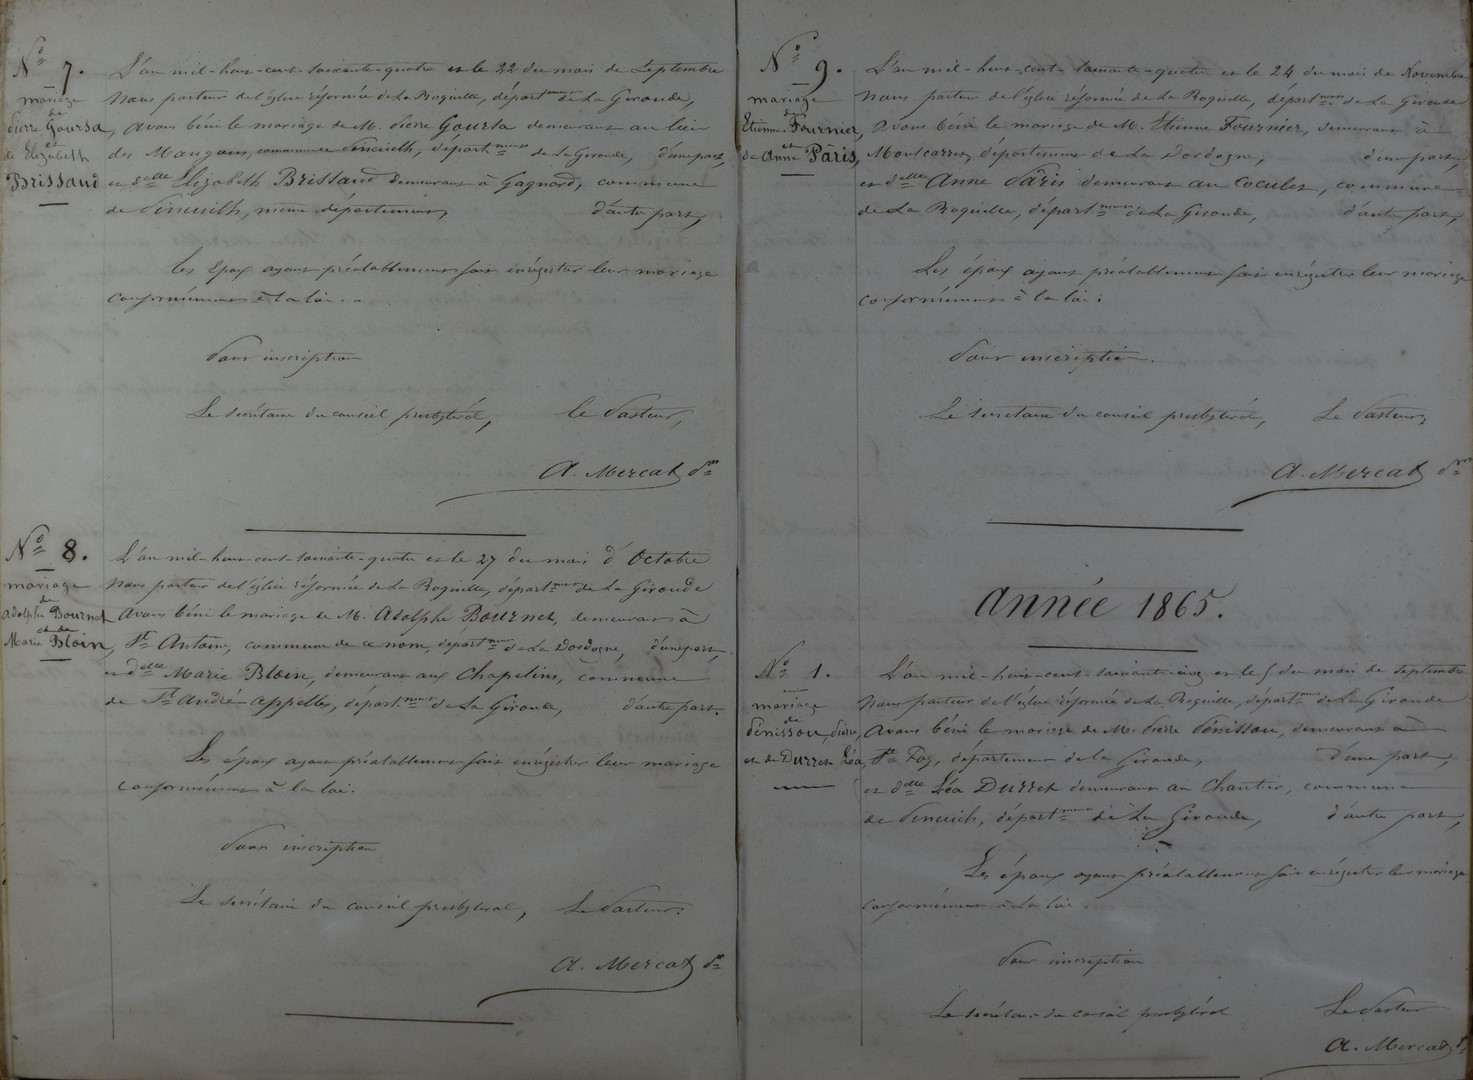 N° 7.
mariage
de
Pierre Goursa
et
de Elizabeth
Brissaud
L'an mil-huit-cent-soixante-quatre et le 22 du mois de Septembre
Nous pasteur de l'église réformée de La Roquille, départment de La Gironde,
avons béni le mariage de M. Pierre Goursa demeurant au lieu
des Mangons, commune Pineuilh, départment de La Gironde, d'une part,
et delle Elizabeth Brissaud demeurant à Gagnard, commune
de Pineuilh, même département, d'autre part,
Les Epoux ayant préalablement fait enrégistrer leur mariage
conformément à la loi.
Pour inscription
Le secrétaire du conseil presbytéral, Le Pasteur,
A. Mercat Pr
N° 8.
mariage
de
Adolphe Bournet
et de
Marie Bloin,
L'an mil-huit-cent-soixante-quatre et le 27 du mois d'Octobre
Nous pasteur de l'église réformée de La Roquille, départment de La Gironde
Avons béni le mariage de M. Adolphe Bournet, demeurant à
St Antoine, commune de ce nom, départment de La Dordogne, d'une part,
et delle Marie Bloin, demeurant aux Chapelins, commune
de St André Appelles, départment de La Gironde, d'autre part.
Les époux ayant préalablement fait enrégistrer leur mariage
conformément à la loi.
Pour inscription
Le secrétaire du conseil presbytéral, Le Pasteur.
A. Mercat Pr
N° 9.
mariage
de
Etienne Fournier,
et
de Anne Pâris,
L'an mil-huit-cent-soixante-quatre et le 24 du mois de Novembre
Nous pasteur de l'église réformée de La Roquille, départment de La Gironde
avons béni le mariage de M. Etienne Fournier, demeurant à
Montcarret, département de La Dordogne, d'une part,
et delle Anne Pâris demeurant au Coculet, commune
de La Roquille, départment de La Gironde, d'autre part,
Les époux ayant préalablement fait enrégistrer leur mariage
conformément à la loi.
Pour inscription.
Le secrétaire du conseil presbytéral, Le Pasteur,
A. Mercat Pr
Année 1865.
N° 1.
mariage
de
Pénisson, Pierre,
et de Durret Léa,
L'an mil-huit-cent-soixante-cinq et le 5 du mois de Septembre
Nous pasteur de l'église réformée de La Roquille, départment de La Gironde
avons béni le mariage de M. Pierre Pénisson, demeurant à
Ste Foy, département de la Gironde, d'une part,
et delle Léa Durret demeurant au Chantier, commune
de Pineuich, départment de La Gironde, d'autre part,
Les époux ayant préalablement fait enrégistrer leur mariage
conformément à la loi.
Pour inscription
Le secrétaire du conseil presbytéral Le Pasteur
A. Mercat